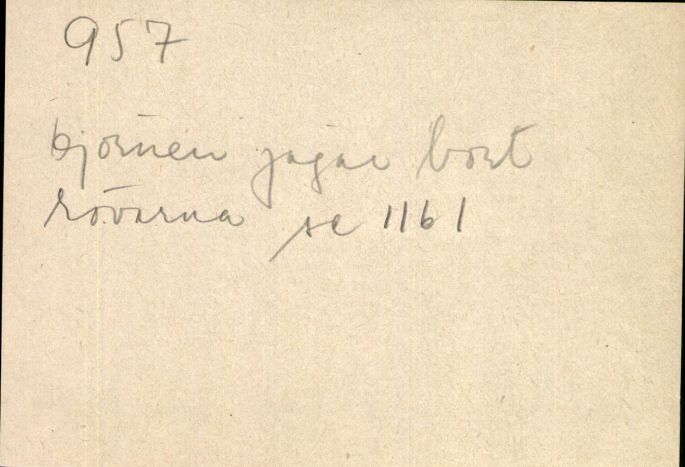 957
björnen jagar bort
rövarna se 1161